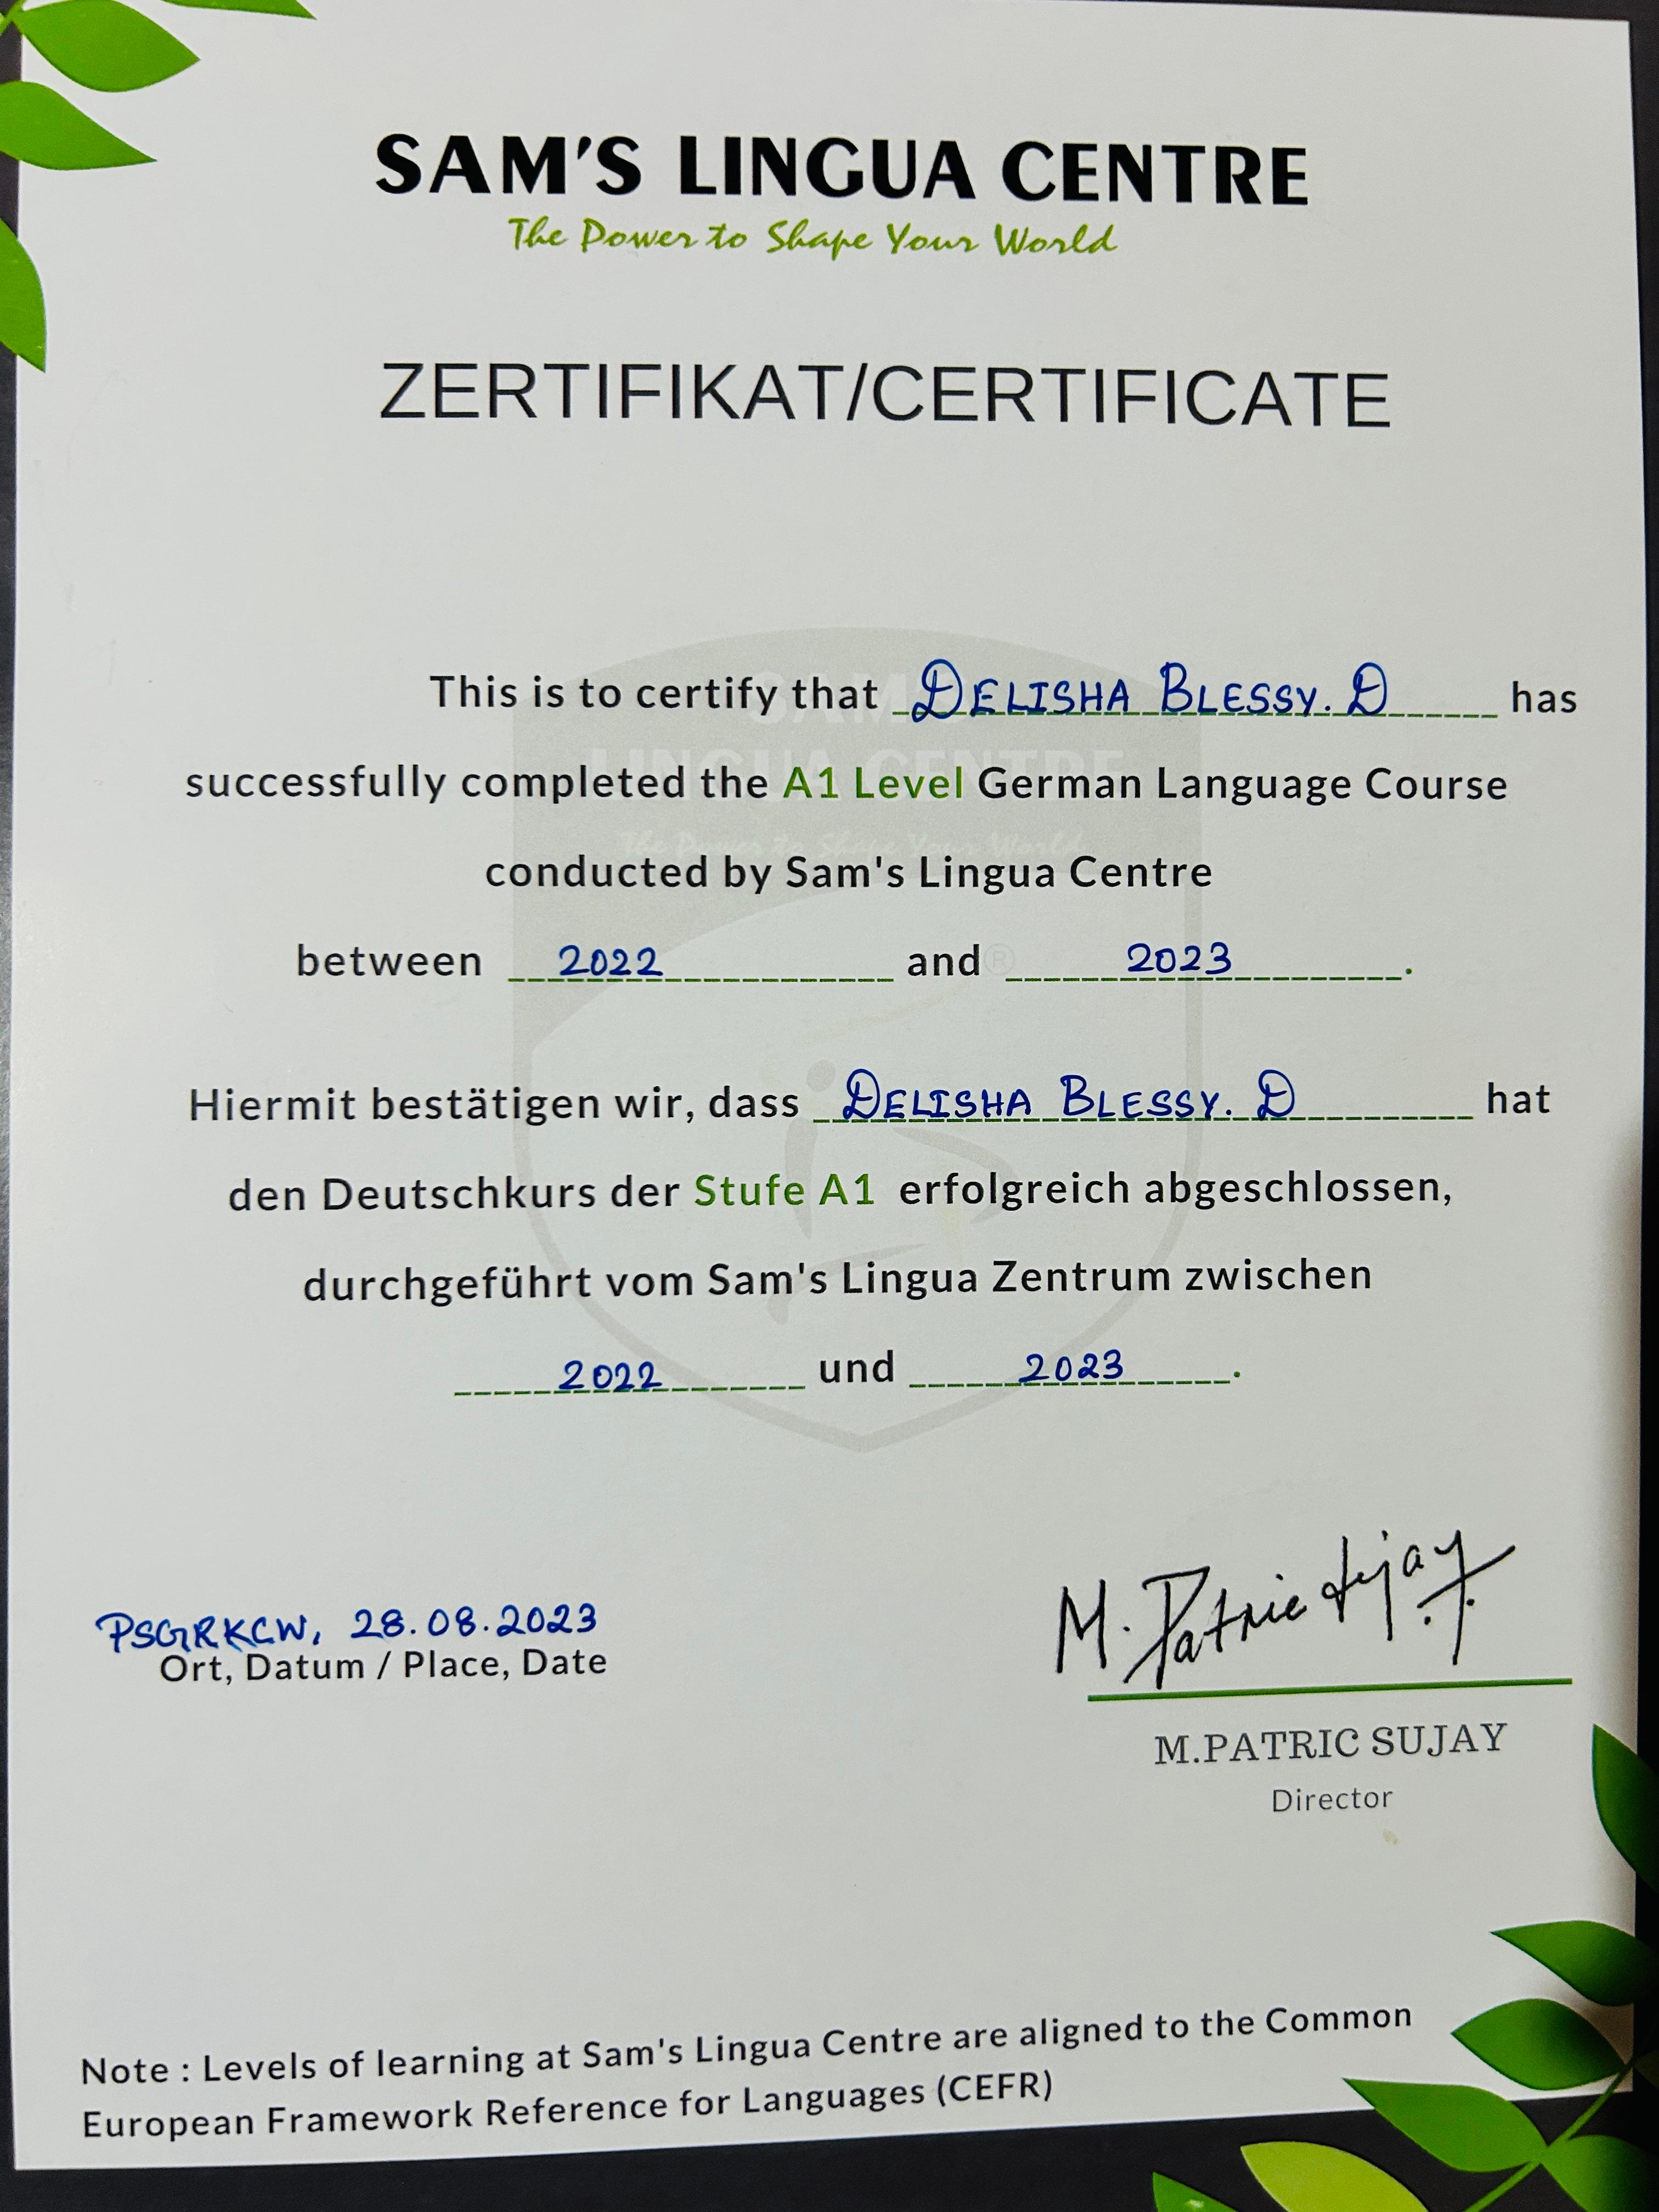 SAM'S LINGUA CENTRE
The Power to Shape Your World
ZERTIFIKAT/CERTIFICATE
This is to certify that DELISHA BLESSY. D has
successfully completed the A1 Level German Language Course
conducted by Sam's Lingua Centre
between 2022 and 2023.
Hiermit bestätigen wir, dass DELISHA BLESSY. D hat
den Deutschkurs der Stufe A1 erfolgreich abgeschlossen,
durchgeführt vom Sam's Lingua Zentrum zwischen
2022 und 2023.
PSGRKCW, 28.08.2023
Ort, Datum / Place, Date
M. Patric Sujay
M.PATRIC SUJAY
Director
Note : Levels of learning at Sam's Lingua Centre are aligned to the Common
European Framework Reference for Languages (CEFR)
SAM'S
LINGUA CENTRE
The Power to Shape Your World
®